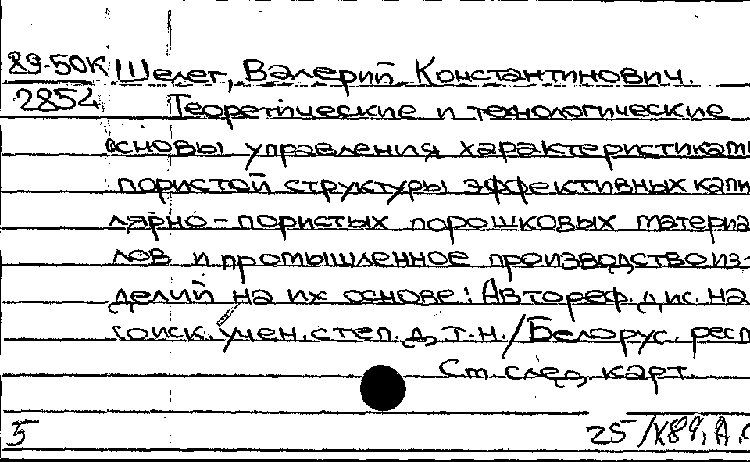 89-50К Шелег, Валерий Константинович.
2854 Теоретические и технологические
основы управления характеристикам
пористой структуры эффективных капи
лярно-пористых порошковых материа
лов и промышленное производство из-
делий на их основе: Автореф. дис. на
соиск. учен. степ. д. т. н. / Белорус. респ
См. след. карт.
5 25/X89, А.